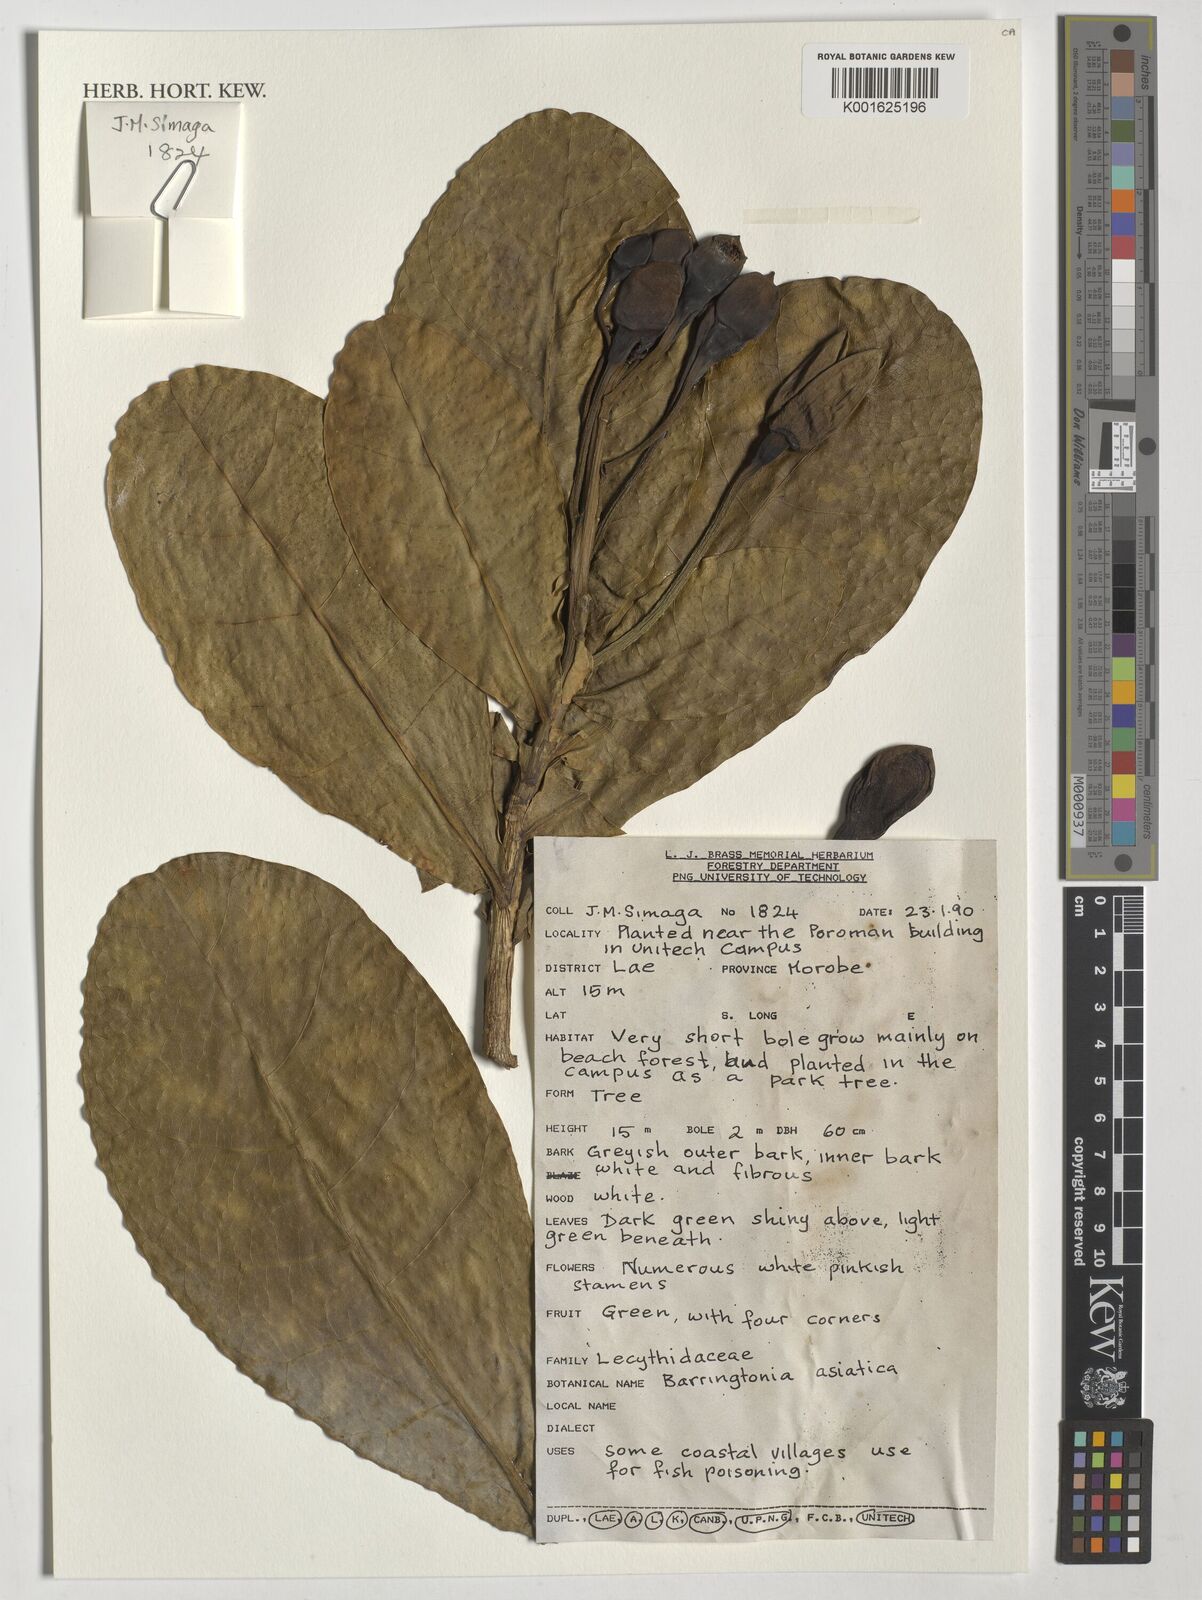 CA
ROYAL BOTANIC GARDENS KEW
K001625196
HERB. HORT. KEW.
J.M.Simaga
1824
L. J. BRASS MEMORIAL HERBARIUM
FORESTRY DEPARTMENT
PNG UNIVERSITY OF TECHNOLOGY
COLL J.M.Simaga No 1824 DATE: 23.1.90
LOCALITY Planted near the Poroman building
in Unitech Campus
DISTRICT Lae PROVINCE Morobe
ALT 15m
LAT S. LONG E
HABITAT Very short bole grow mainly on
beach forest, and planted in the
campus as a park tree.
FORM Tree
HEIGHT 15 m BOLE 2 m DBH 60 cm
BARK Greyish outer bark, inner bark
BLAZE white and fibrous
WOOD white.
LEAVES Dark green shiny above, light
green beneath.
FLOWERS Numerous white pinkish
stamens
FRUIT Green, with four corners
FAMILY Lecythidaceae
BOTANICAL NAME Barringtonia asiatica
LOCAL NAME
DIALECT
USES some coastal villages use
for fish poisoning.
DUPL., LAE, A, L, K, CANB., U.P.N.G., F.C.B., UNITECH
inches
Density
Don Williams
centimeters
M000937
cm
0 1 2 3 4 5 6 7 8 9 10
copyright reserved
Kew
Royal Botanic Gardens